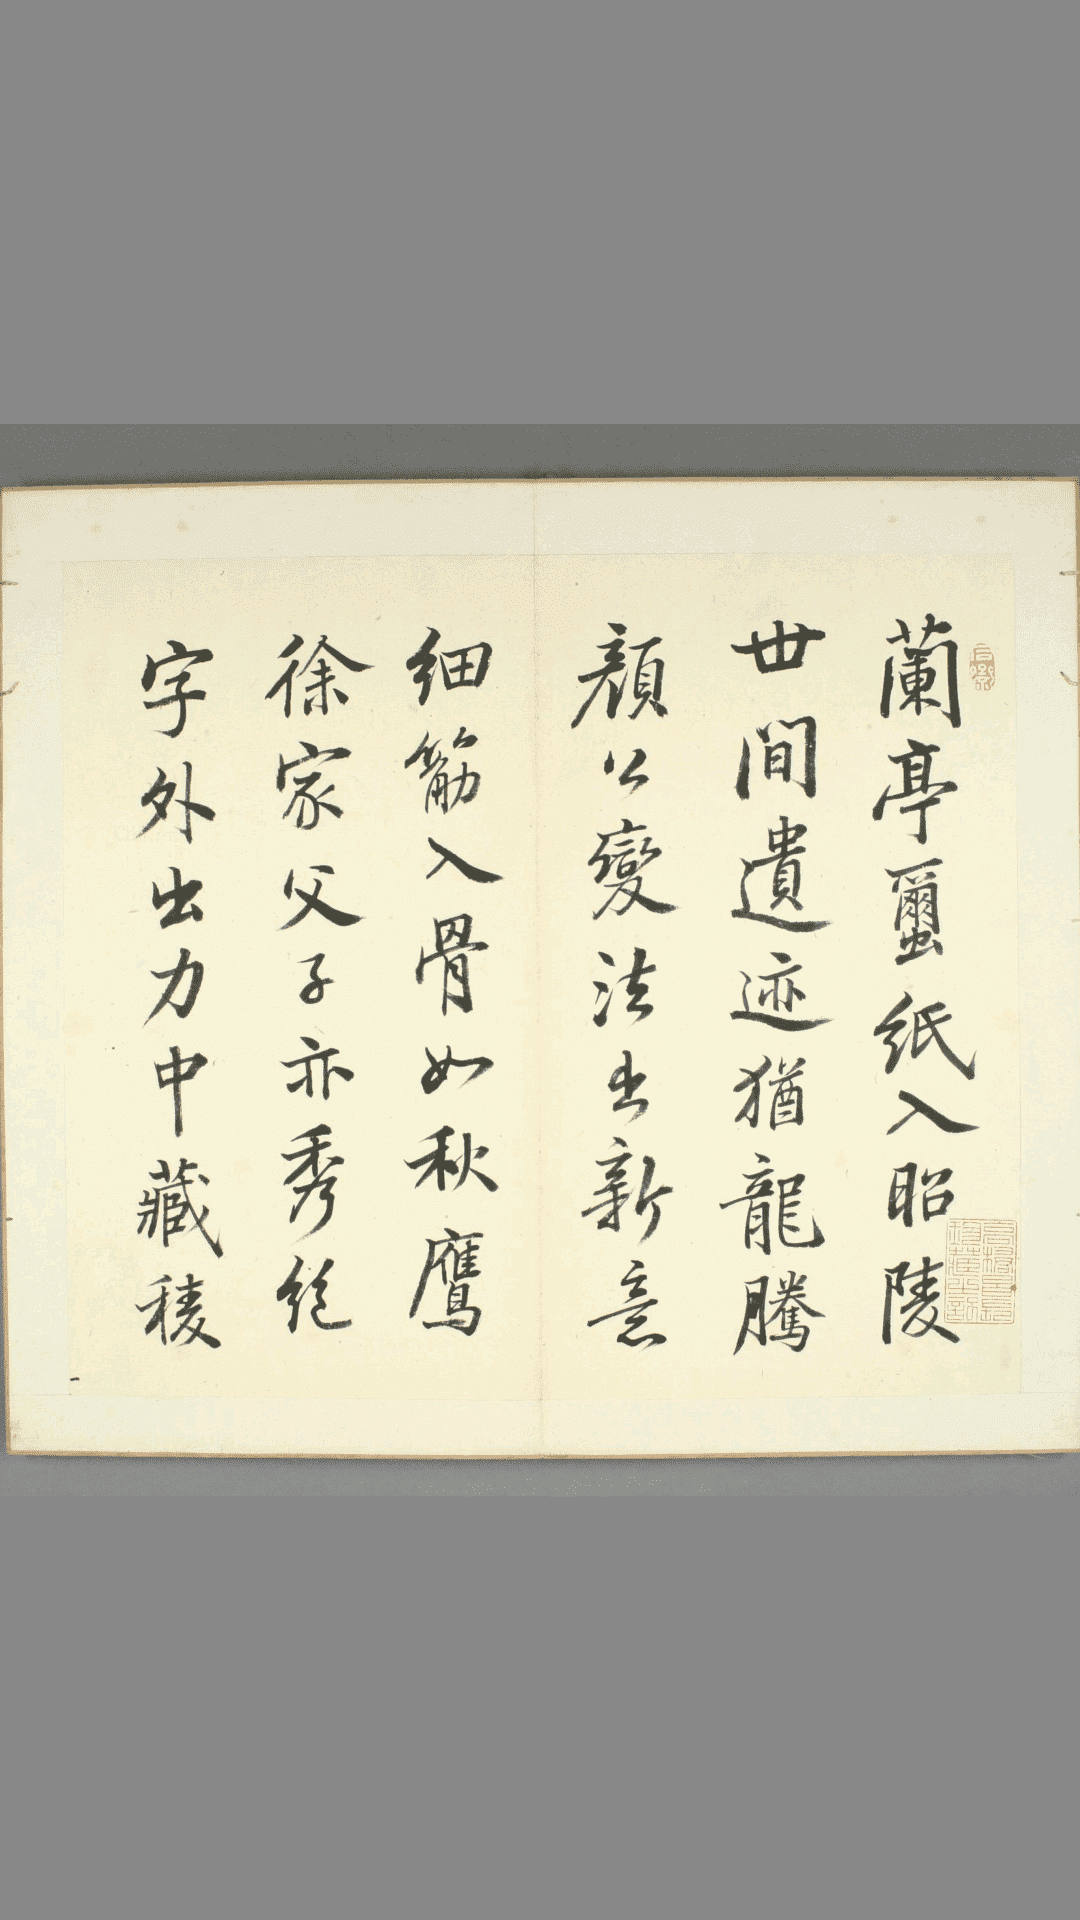 蘭亭蠒紙入昭陵
世間遺迹猶龍騰
顏公變法出新意
細筋入骨如秋鷹
徐家父子亦秀絕
字外出力中藏稜